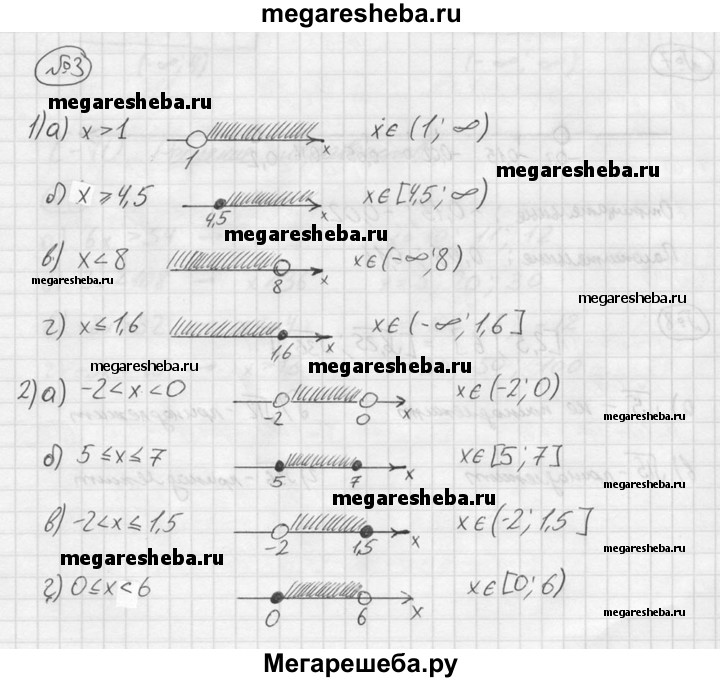 megaresheba.ru
№3
megaresheba.ru
1) а) x > 1 1 x x∈(1; ∞)
megaresheba.ru
б) x ⩾ 4,5 4,5 x x∈[4,5; ∞)
megaresheba.ru
в) x < 8 8 x x∈(-∞; 8)
megaresheba.ru
megaresheba.ru
г) x ≤ 1,6 1,6 x x∈(-∞; 1,6]
megaresheba.ru
megaresheba.ru
2) а) -2 < x < 0 -2 0 x x∈(-2; 0)
megaresheba.ru
б) 5 ≤ x ≤ 7 5 7 x x∈[5; 7]
megaresheba.ru
в) -2 < x ≤ 1,5 -2 1,5 x x∈(-2; 1,5]
megaresheba.ru
megaresheba.ru
г) 0 ≤ x < 6 0 6 x x∈[0; 6)
megaresheba.ru
Мегарешеба.ру